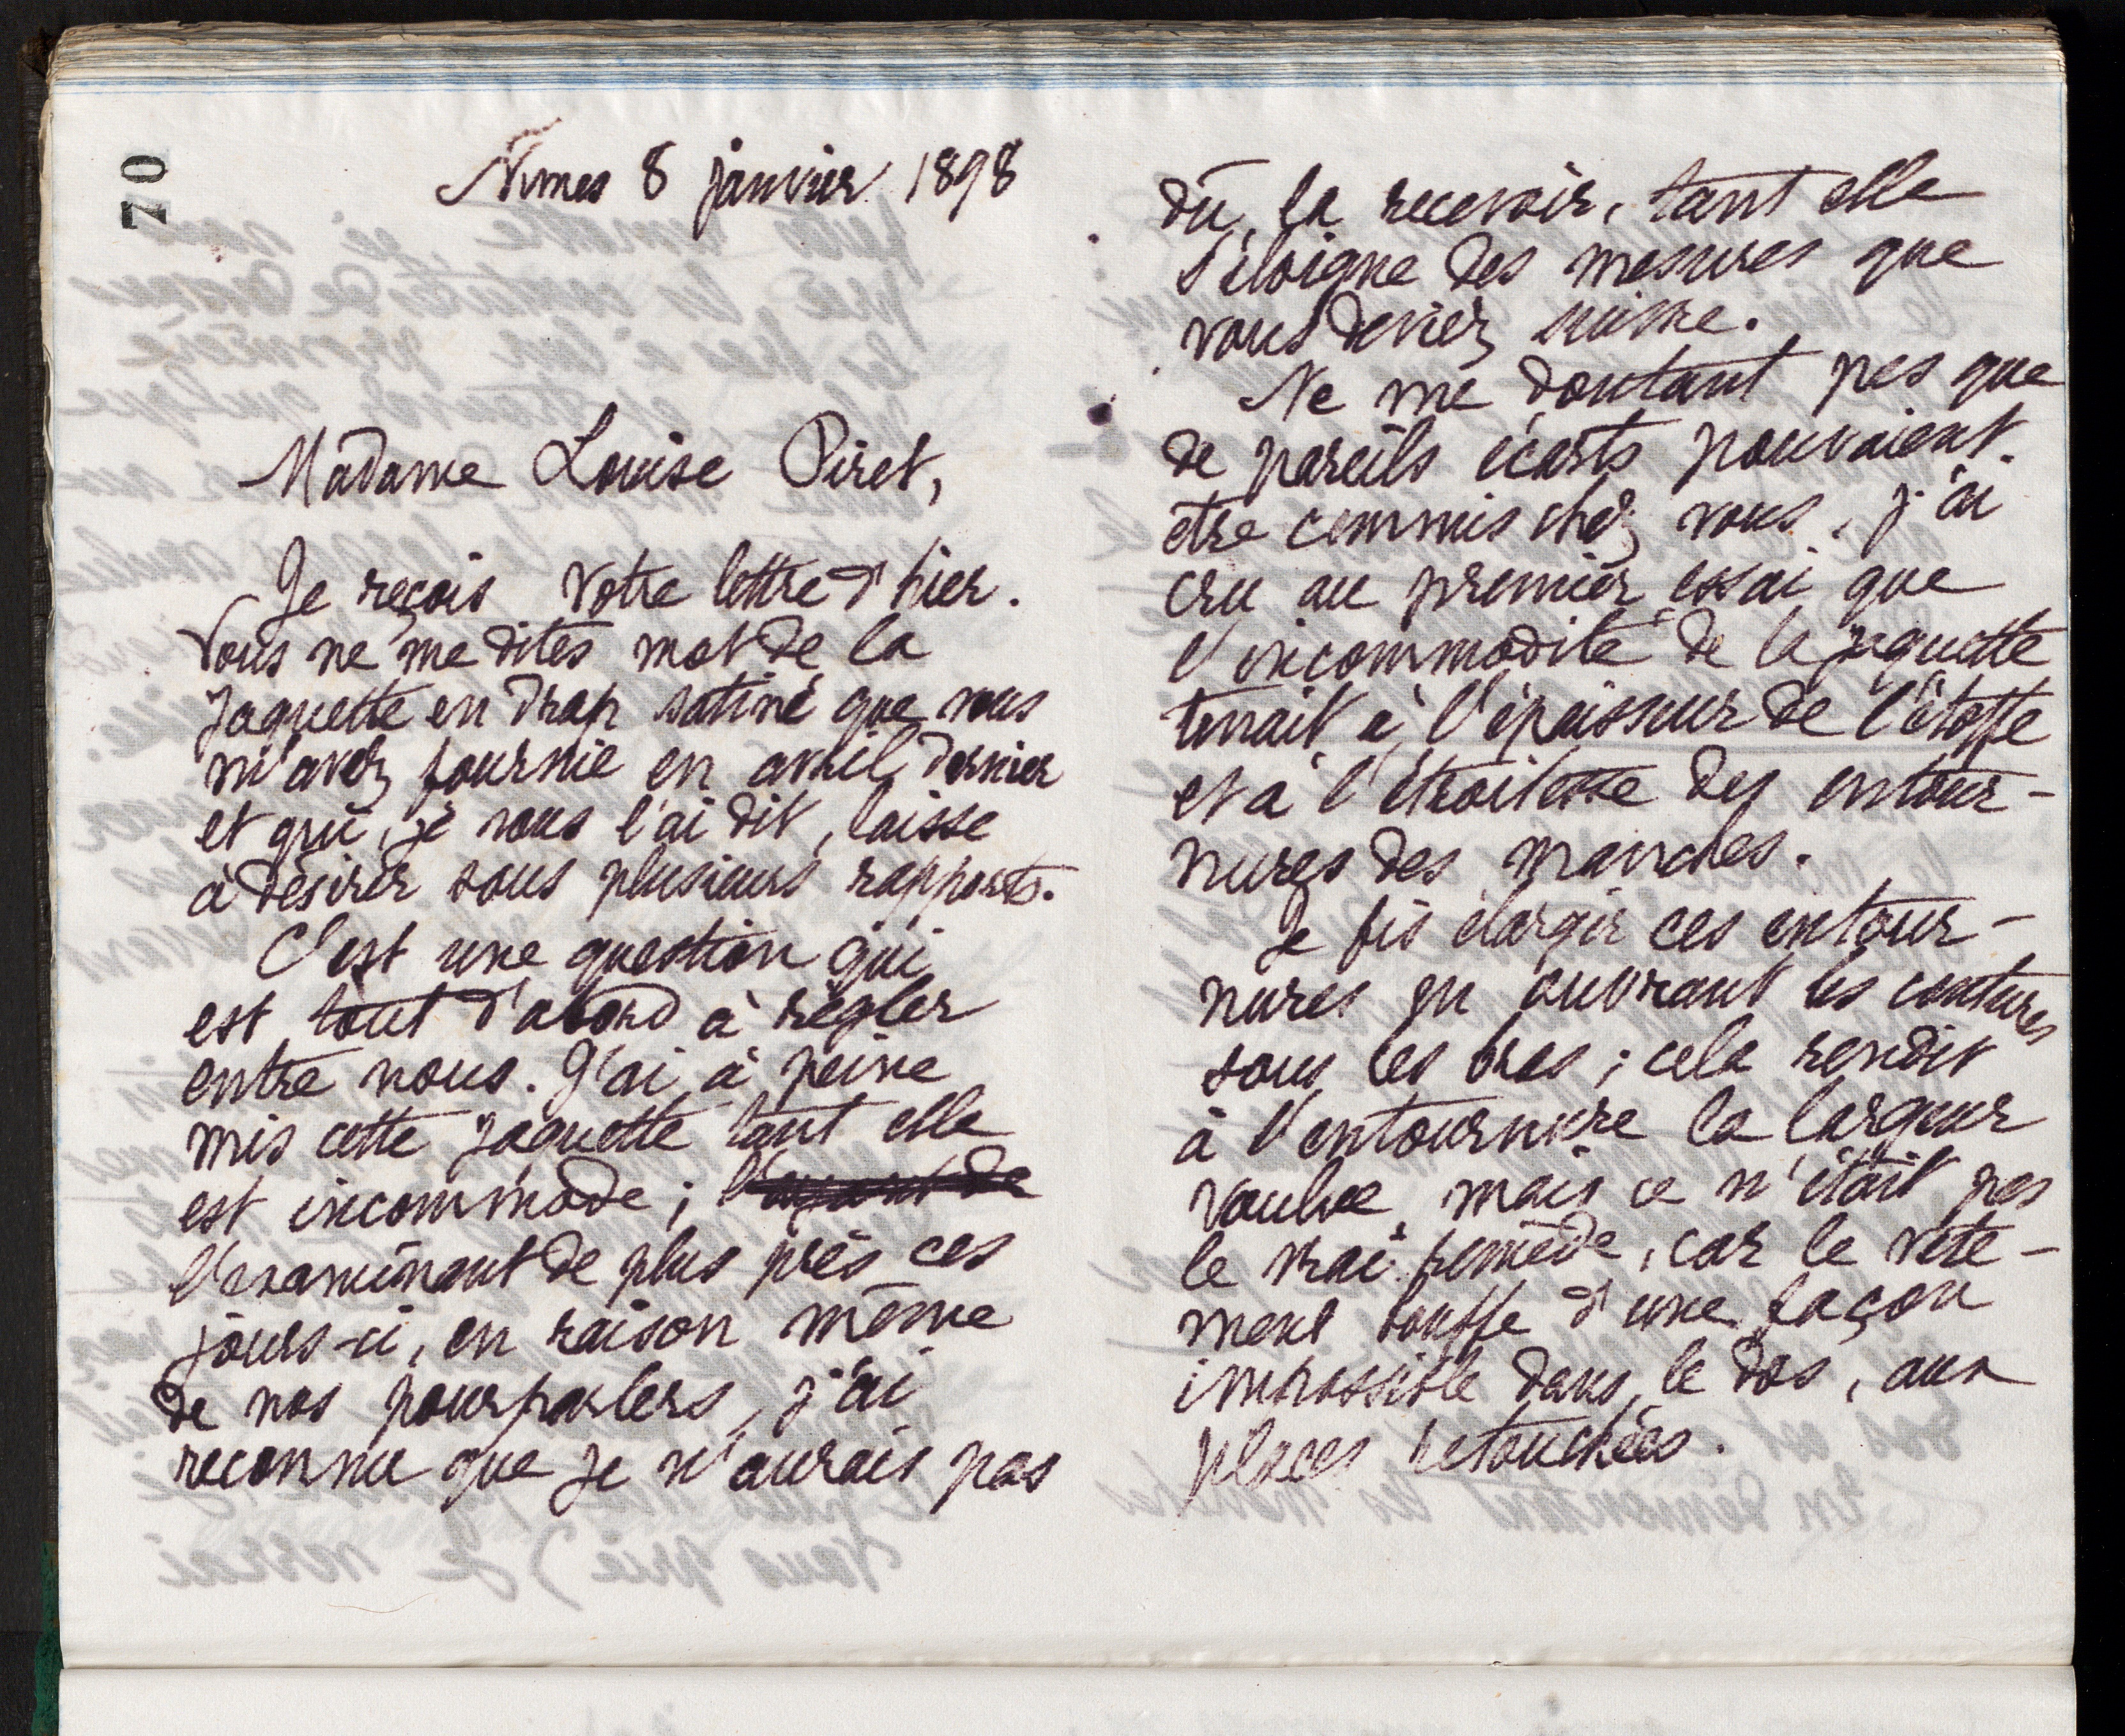 70
Nimes 8 janvier 1898
Madame Louise Piret,
Je reçois votre lettre d'hier.
Vous ne me dites mot de la
jaquette en drap satiné que vous
m'avez fournie en avril dernier
et qui, je vous l'ai dit, laisse
à désirer sous plusieurs rapports.
C'est une question qui
est tout d'abord à régler
entre nous. J'ai à peine
mis cette jaquette tant elle
est incommode ;
l'examinant de plus près ces
jours-ci, en raison même
de nos pourparlers, j'ai
reconnu que je n'aurais pas
dû la recevoir, tant elle
s'éloigne des mesures que
vous deviez suivre.
Ne me doutant pas que
de pareils écarts pouvaient
être commis chez vous, j'ai
cru au premier essai que
l'incommodité de la jaquette
tenait à l'épaisseur de l'étoffe
et à l'étroitesse des entour-
nures des manches.
Je fis élargir ces entour-
nures en ouvrant les coutures
sous les bras ; cela rendit
à l'entournure la largeur
voulue mais ce n'était pas
le vrai remède, car le vête-
ment bouffe d'une façon
impossible dans le dos, aux
places retouchées.